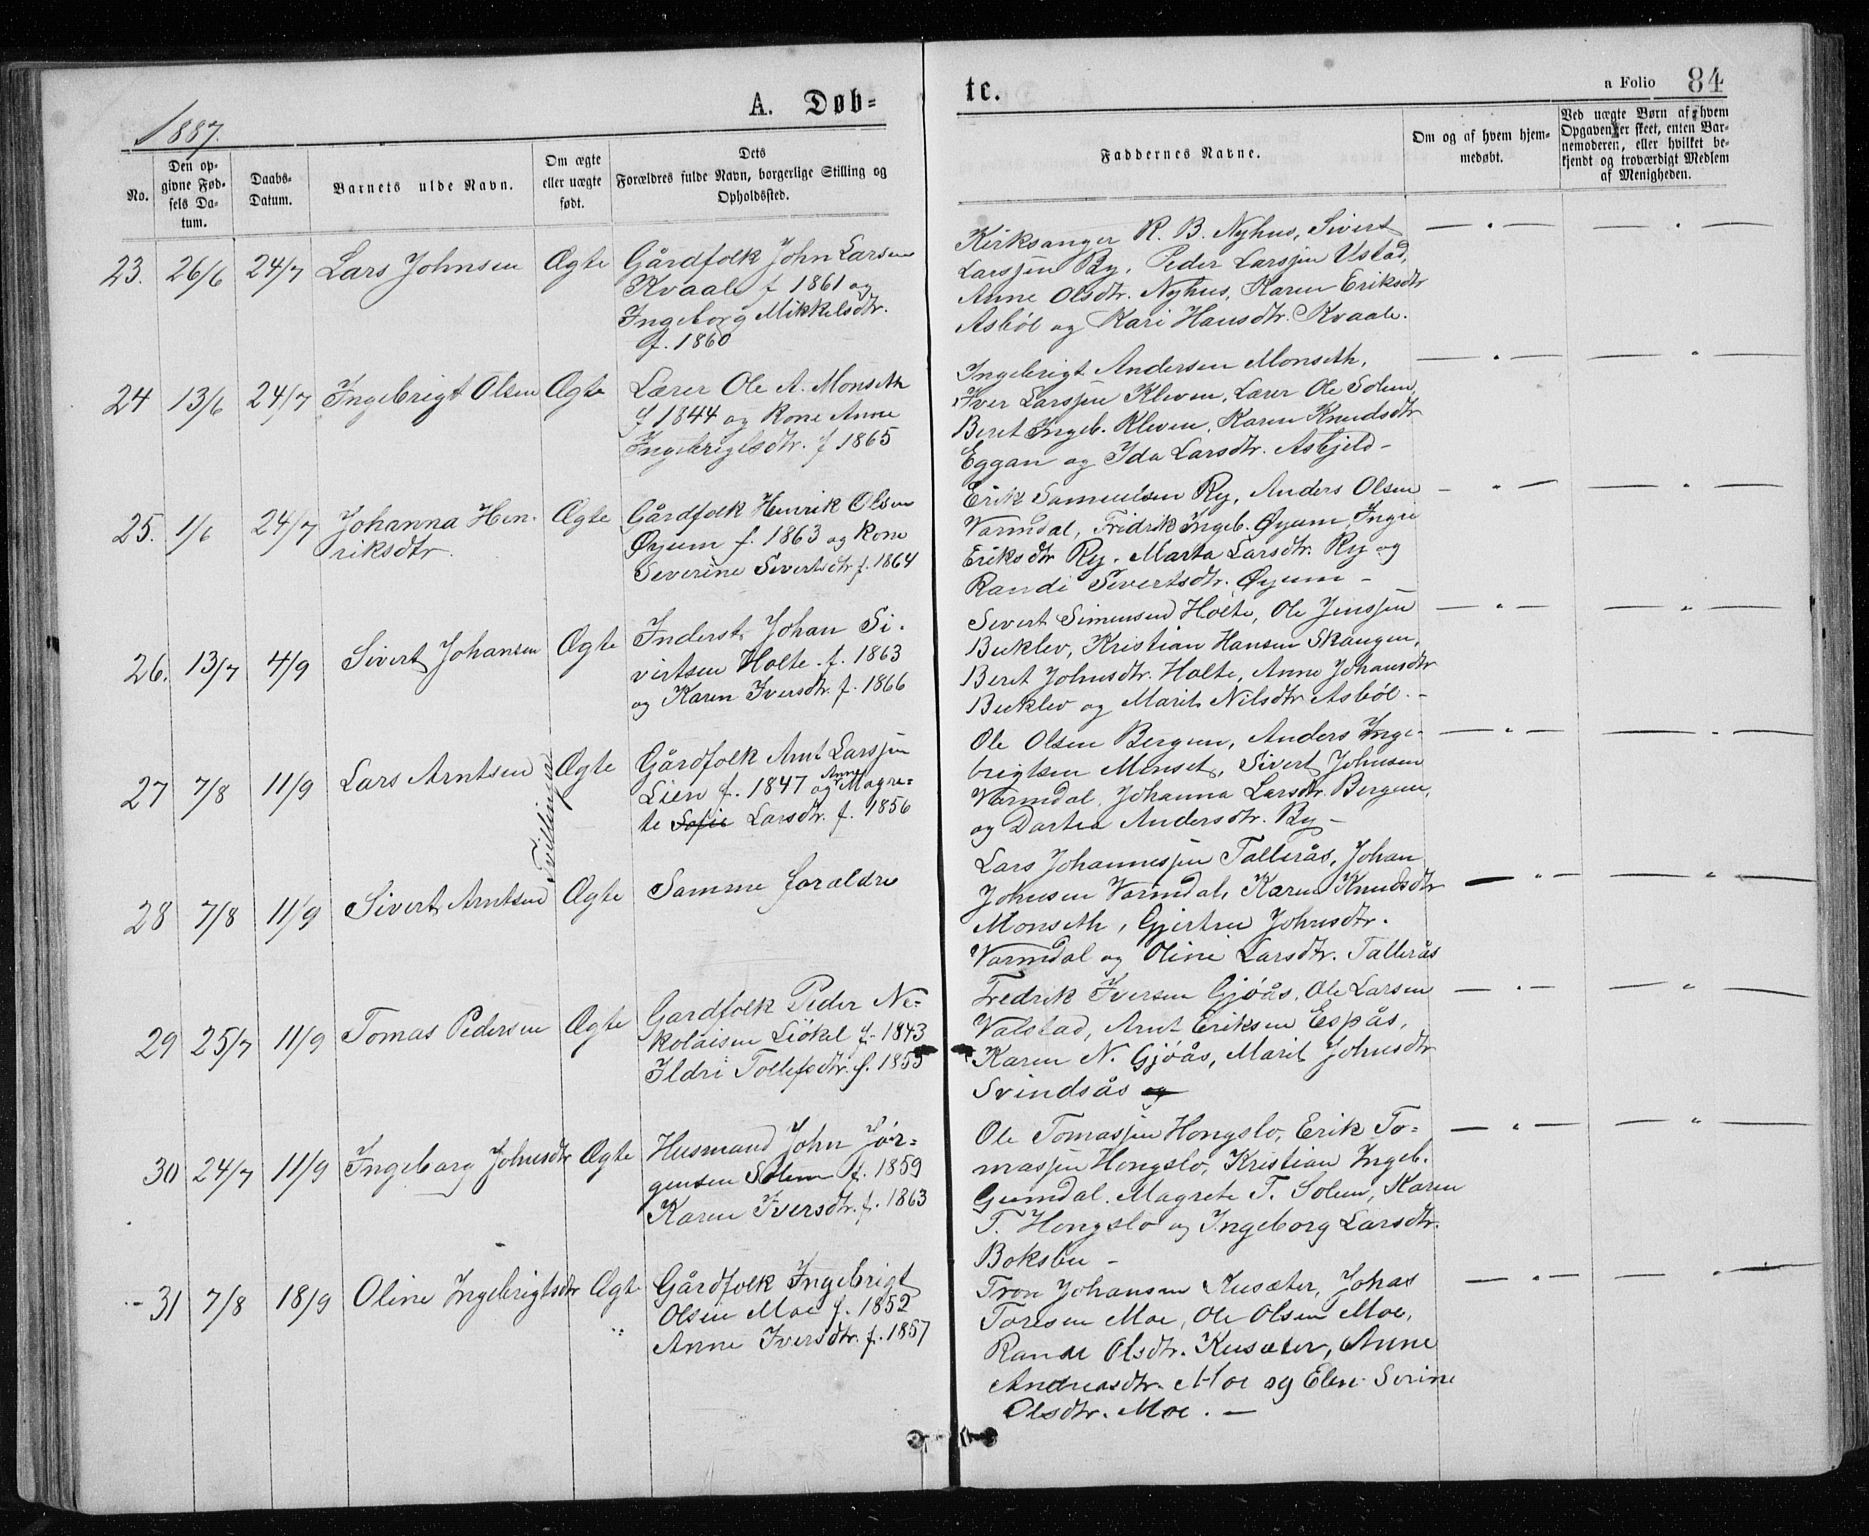 1887.
A. Døb-
te.
a Folio 84
No.
Den op-
givne Fød-
sels Da-
tum.
Daabs-
Datum.
Barnets fulde Navn.
Om ægte
eller uægte
født.
Dets
Forældres fulde Navn, borgerlige Stilling og
Opholdssted.
Faddernes Navne.
Om og af hvem hjem-
medøbt.
Ved uægte Børn af hvem
Opgaven er skeet, enten Bar-
nemoderen, eller hvilket be-
kjendt og troværdigt Medlem
af Menigheden.
23. 26/6 24/7 Lars Johnsen Ægte
Gårdfolk John Larsen
Kvaale f 1861 og
Ingeborg Mikkelsdtr.
f. 1860
Kirksanger R. B. Nyhus, Sivert
Larssen Ry, Peder Larssen Ustad,
Anne Olsdtr. Nyhus, Karen Eriksdtr
Asbøl og Kari Hansdtr. Kvaale.
24 13/6 24/7 Ingebrigt Olsen Ægte
Lærer Ole A. Monseth
f 1844 og Kone Anne
Ingebrigtsdtr. f 1865
Ingebrigt Andersen Monseth,
Iver Larssen Kleven, Lærer Ole Solem,
Beret Ingeb. Kleven, Karen Knudsdtr
Eggan og Ida Larsdtr. Asbjeld -
25. 1/6 24/7 Johanna Hen-
riksdtr. Ægte
Gårdfolk Henrik Olsen
Øyum f. 1863 og Kone
Severine Sivertsdtr f. 1864
Erik Samuelsen Ry, Anders Olsen
Varmdal, Fridrik Ingeb. Øyum, Ingre
Eriksdtr Ry, Marta Larsdtr. Ry og
Randi Sivertsdtr. Øyum -
26. 13/7 4/9 Sivert Johansen Ægte
Inderst Johan Si-
vertsen Holte f. 1863
og Karen Iversdtr. f. 1866
Sivert Simensen Holte, Ole Jenssen
Buklev, Kristian Hansen Skaugen,
Beret Johnsdtr. Holte, Anne Johansdtr
Buklev og Marit Nilsdtr Asbøl. -
27 7/8 11/9 Lars Arntsen Ægte
Tvillinger
Gårdfolk Arnt Larssen
Lien f. 1847 og Anne Magre-
te Sofie Larsdtr. f. 1856
Ole Olsen Bergem, Anders Inge-
brigtsen Monset, Sivert Johnsen
Varmdal, Johanna Larsdtr. Bergem,
og Dortea Andersdtr. Ry -
28 7/8 11/9 Sivert Arntsen Ægte
Samme forældre
Lars Johannessen Tallerås, Johan
Johnsen Varmdal, Karen Knudsdtr
Monseth, Gjertru Johnsdtr.
Varmdal og Oline Larsdtr. Tallerås
29 25/7 11/9 Tomas Pedersen Ægte
Gardfolk Peder Ne-
kolaisen Liøkel f. 1843
Ildri Tollefsdtr. f. 1855
Fredrik Iversen Gjøås, Ole Larsen
Valstad, Arnt Eriksen Espås,
Karen N. Gjøås, Marit Johnsdtr
Svindsås og
30 24/7 11/9 Ingeborg Johnsdtr Ægte
Husmand John Jør-
gensen Solem f. 1859
Karen Iversdtr. f. 1863
Ole Tomassen Hongslo, Erik To-
massen Hongslo, Kristian Ingeb.
Gumdal. Magrete T. Solem, Karen
T. Hongslo og Ingeborg Larsdtr.
Boksbu -
31 7/8 18/9 Oline Ingebrigtsdtr Ægte
Gårdfolk Ingebrigt
Olsen Moe f. 1852
Anne Iversdtr. f. 1857
Tron Johansen Kusæter, Johas
Toresen Moe, Ole Olsen Moe,
Randi Olsdtr. Kusæter, Anne
Andreasdtr. Moe og Elen Serine
Olsdtr. Moe. -